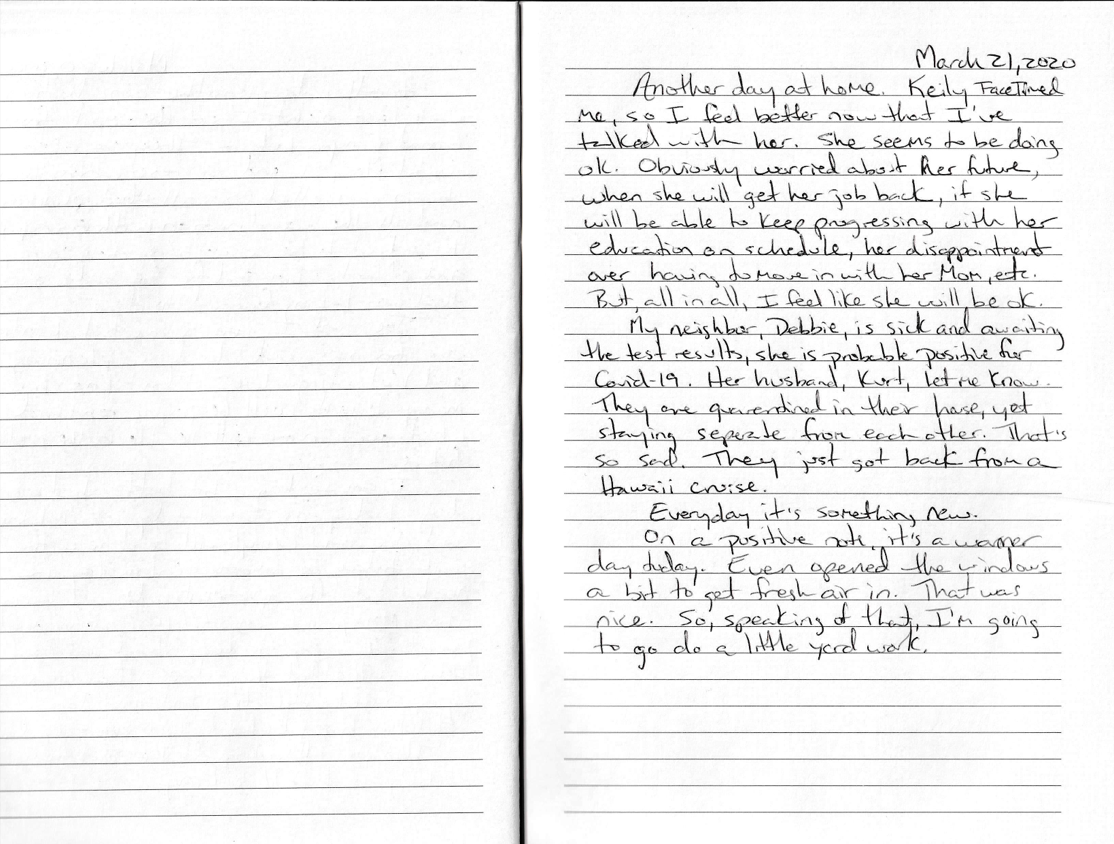 March 21, 2020
Another day at home. Keily FaceTimed
me, so I feel better now that I've
talked with her. She seems to be doing
ok. Obviously worried about her future,
when she will get her job back, if she
will be able to keep progressing with her
education on schedule, her disappointment
over having to move in with her Mom, etc.
But, all in all, I feel like she will be ok.
My neighbor, Debbie, is sick and awaiting
the test results, she is probable positive for
Covid-19. Her husband, Kurt, let me know.
They are quarendined in their house, yet
staying seperate from each other. That's
so sad. They just got back from a
Hawaii cruise.
Everyday it's something new.
On a positive note, it's a warmer
day today. Even opened the windows
a bit to get fresh air in. That was
nice. So, speaking of that, I'm going
to go do a little yard work.